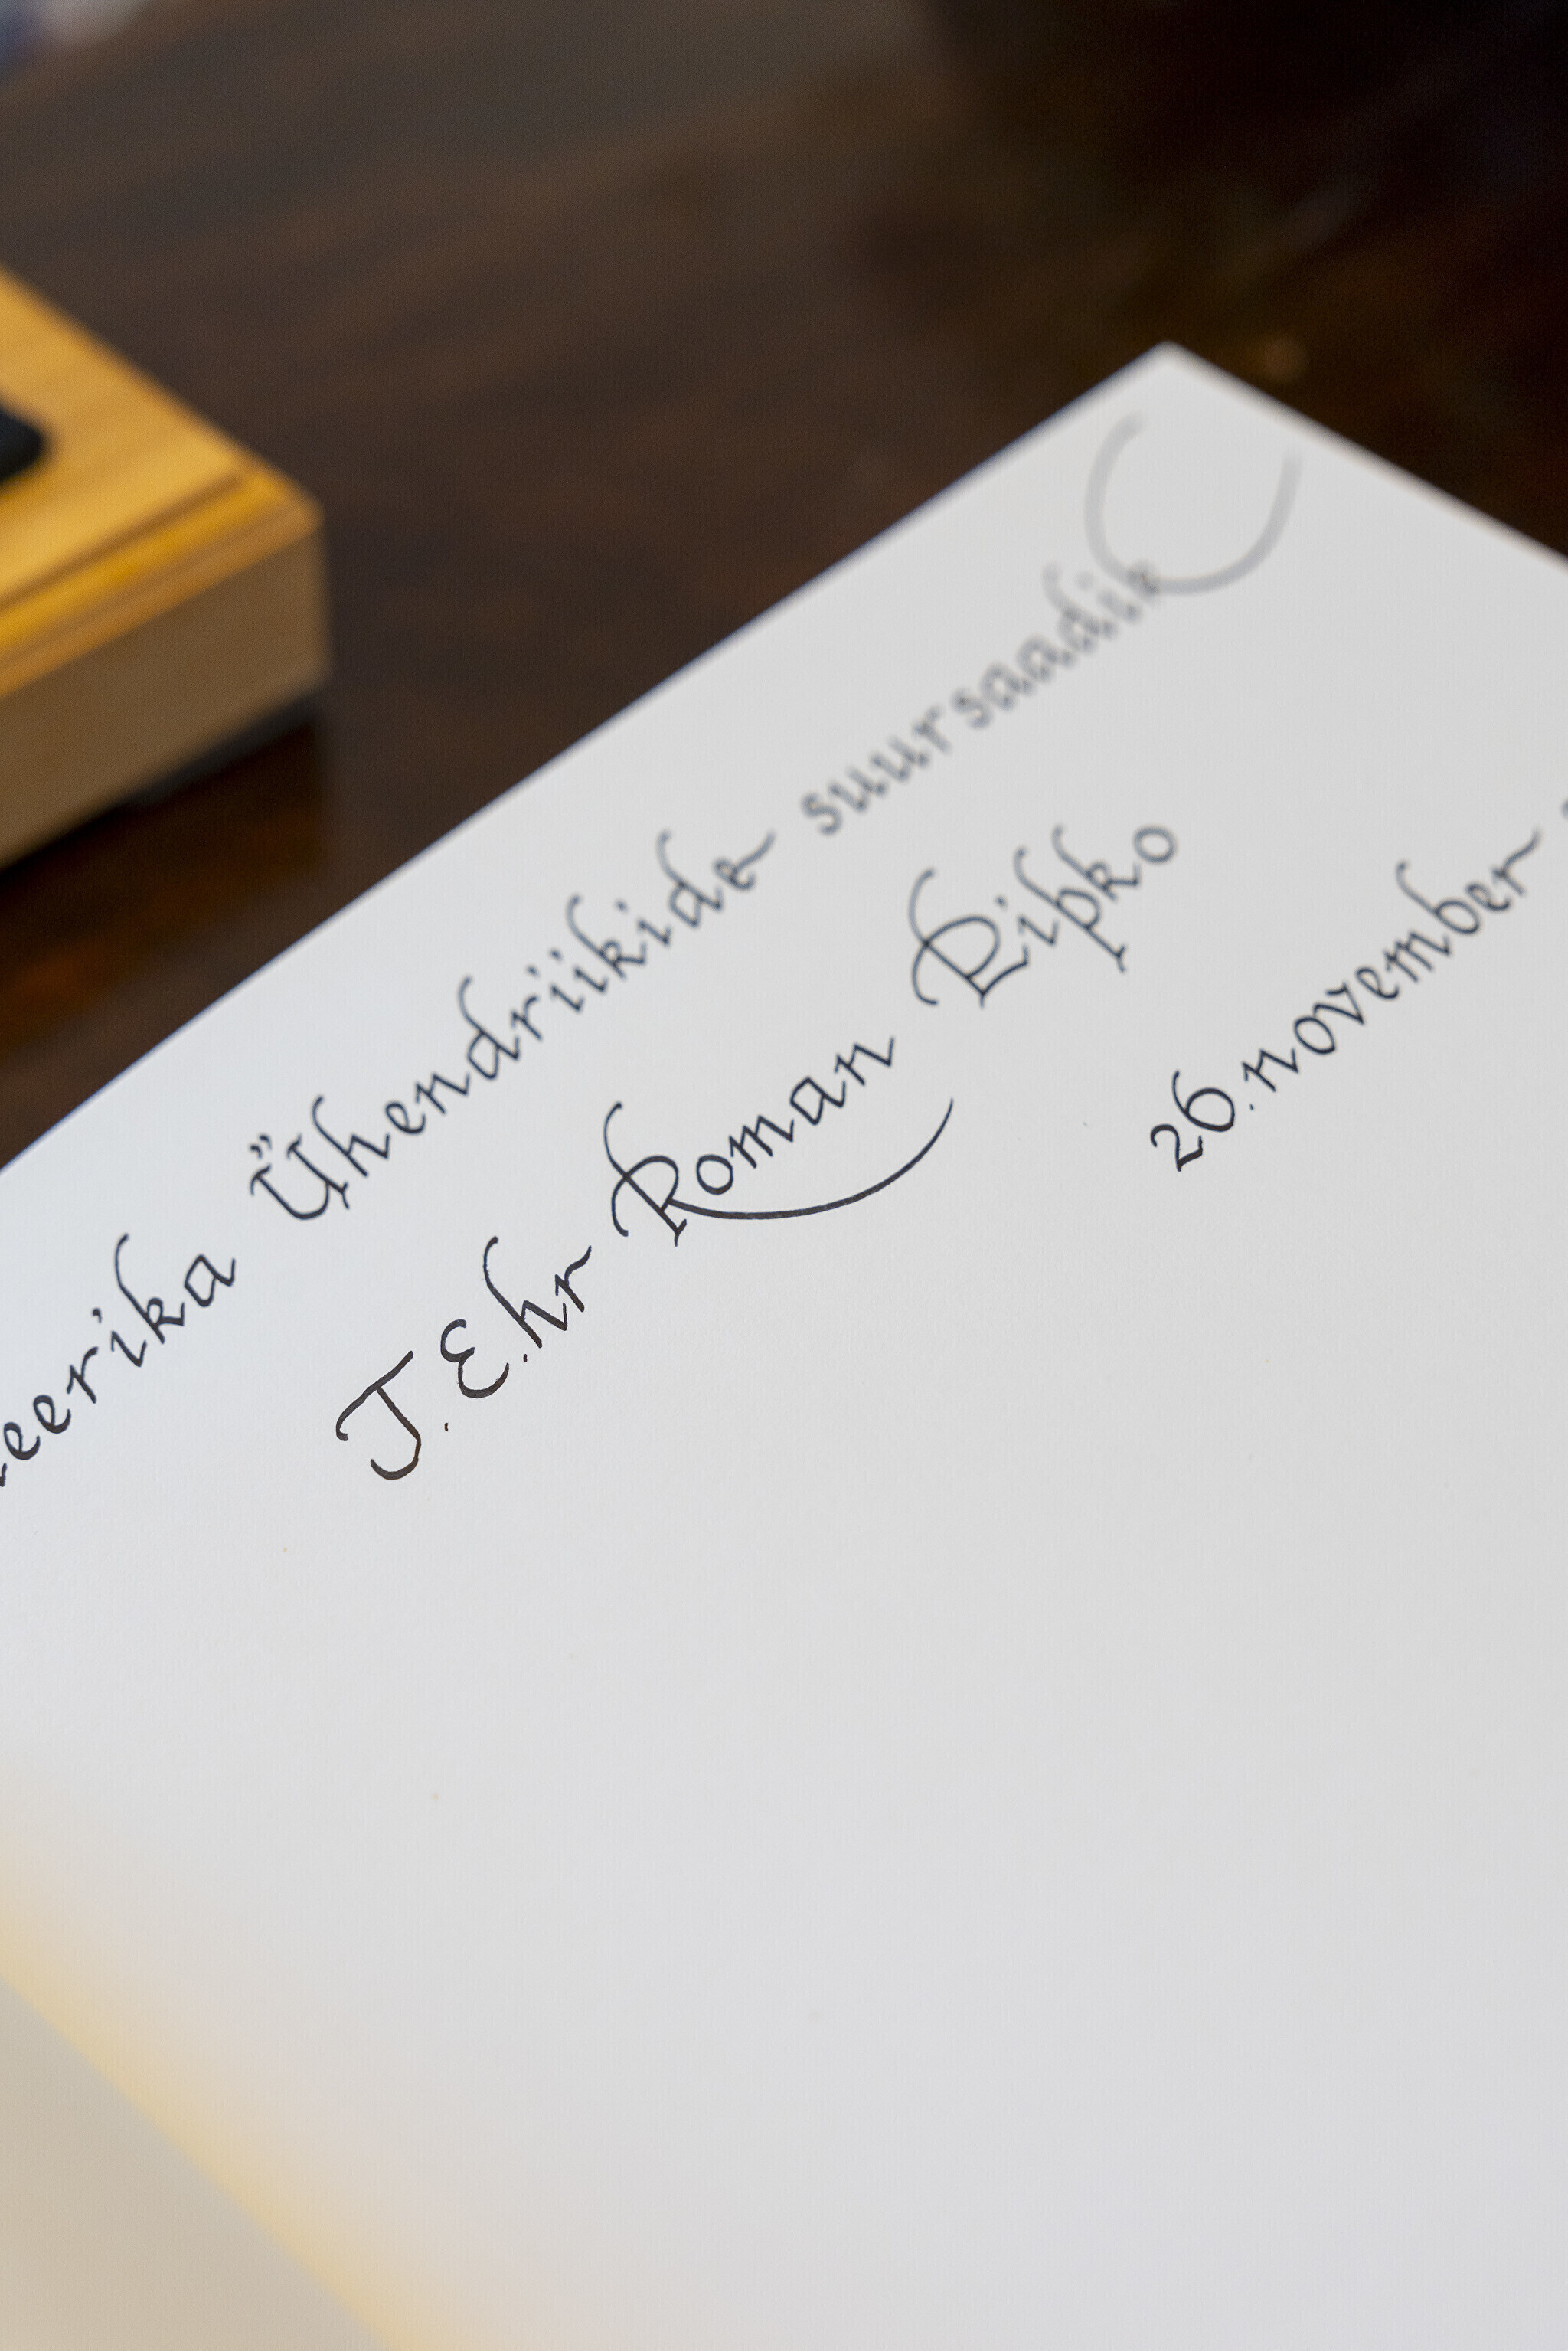 eerika Ühendriikide suursaadik
T.E.hr Roman Pipko
26. november